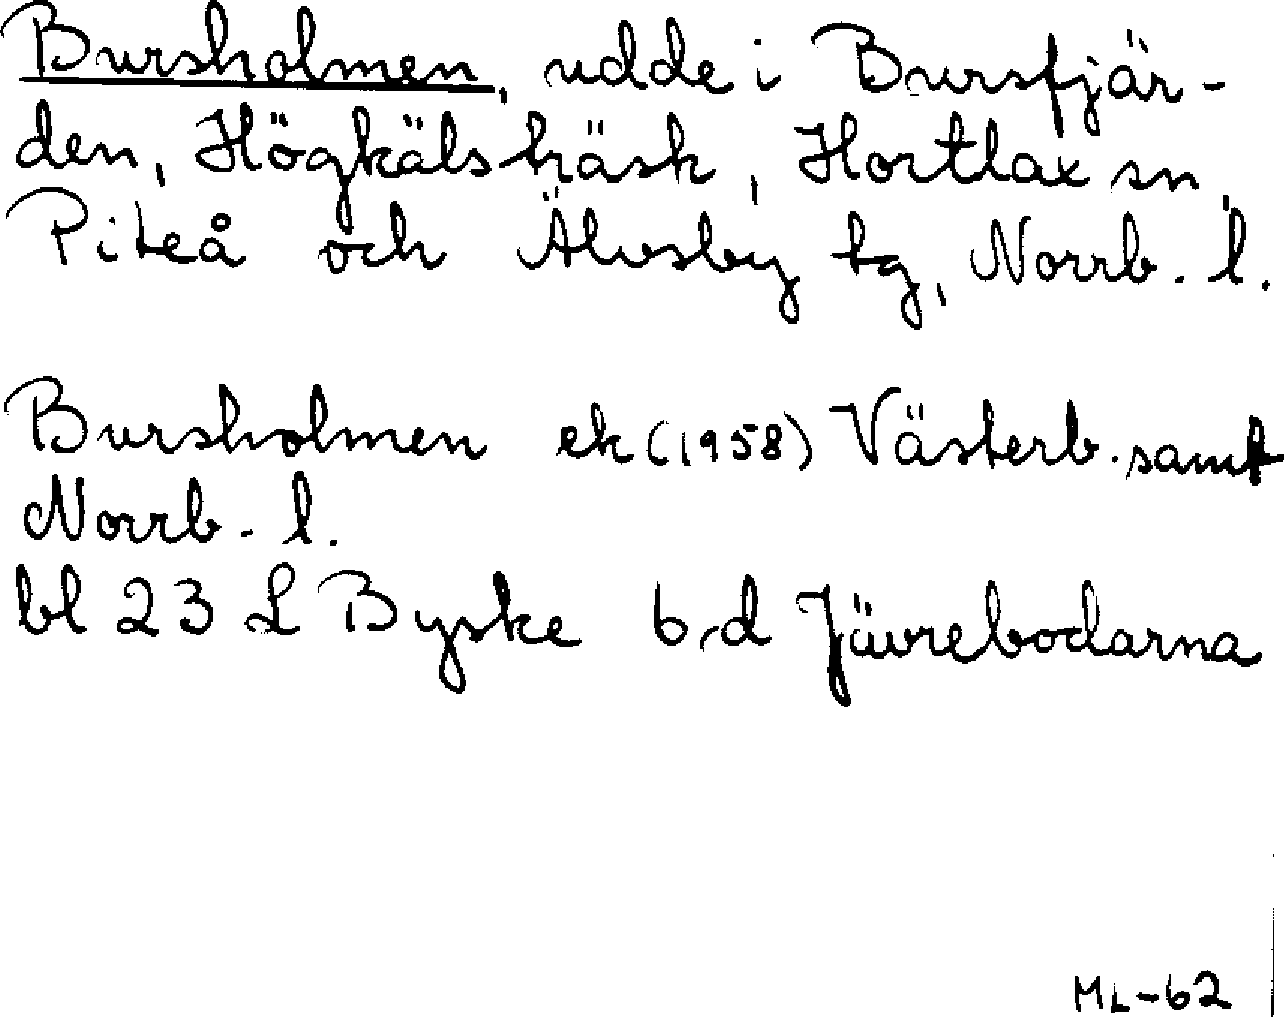 Bursholmen, udde i Bursfjär-
den, Högkälsträsk, Hortlax sn,
Piteå och Älvsby tg, Norrb. l.
Bursholmen ek (1958) Västerb. samt
Norrb. l.
bl 23 L Byske b, d Jävrebodarna
ML-62